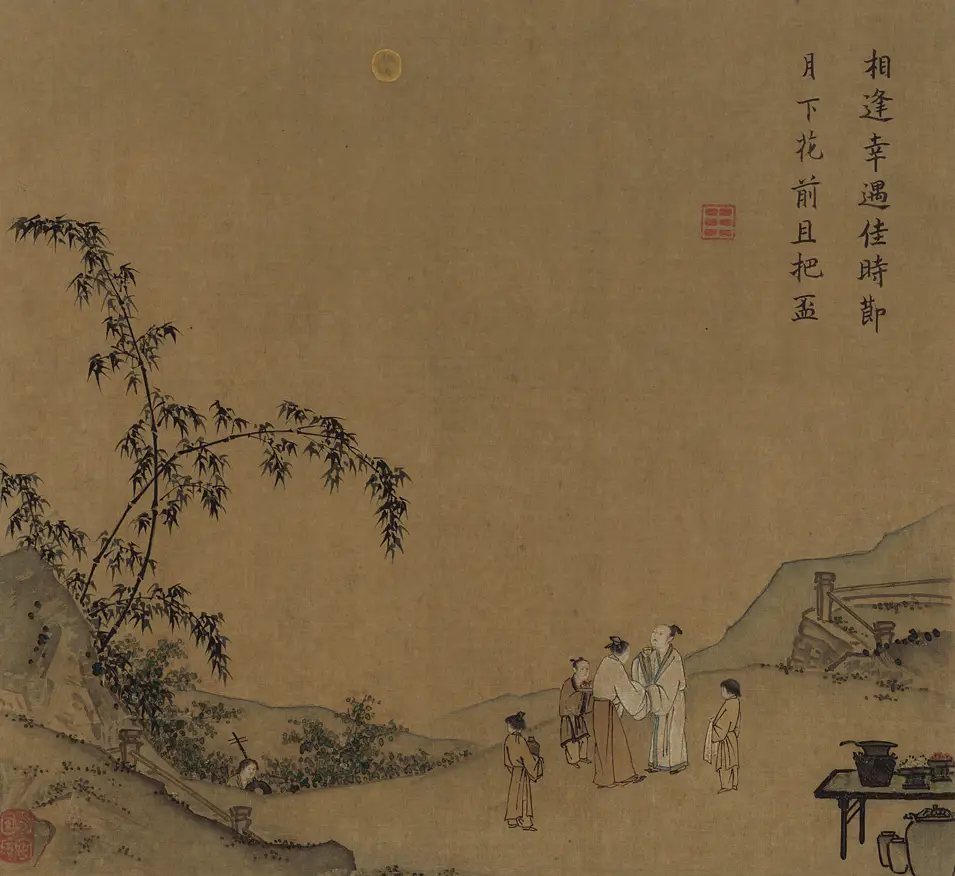 相逢幸遇佳時節
月下花前且把盃